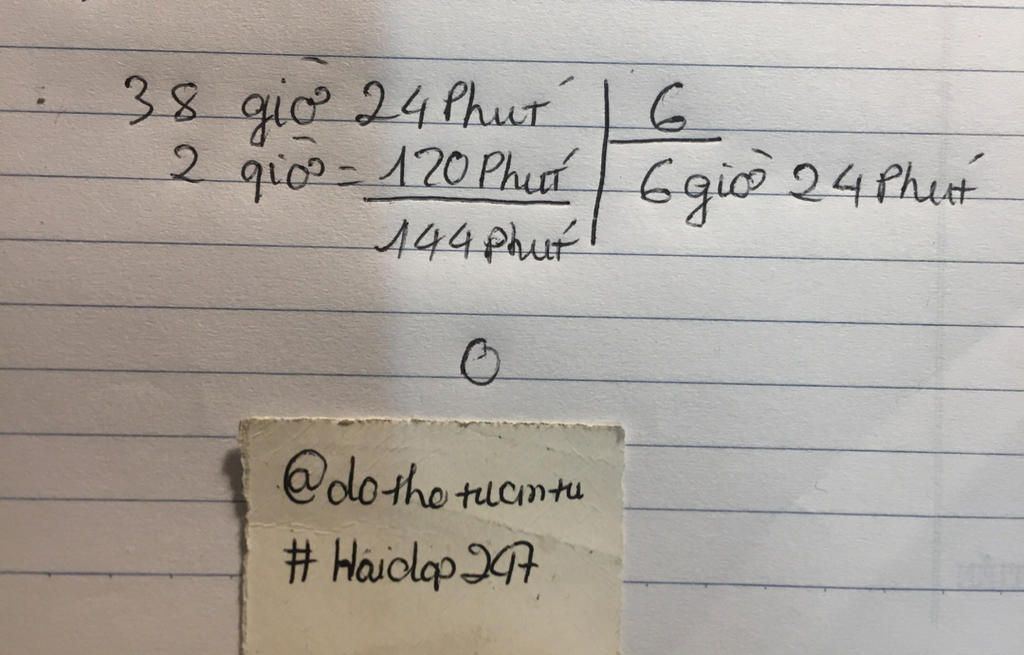 38 giờ 24 Phút 6
2 giờ = 120 Phút 6 giờ 24 Phút
144 Phút
0
@dothotuantu
#Hoidap247